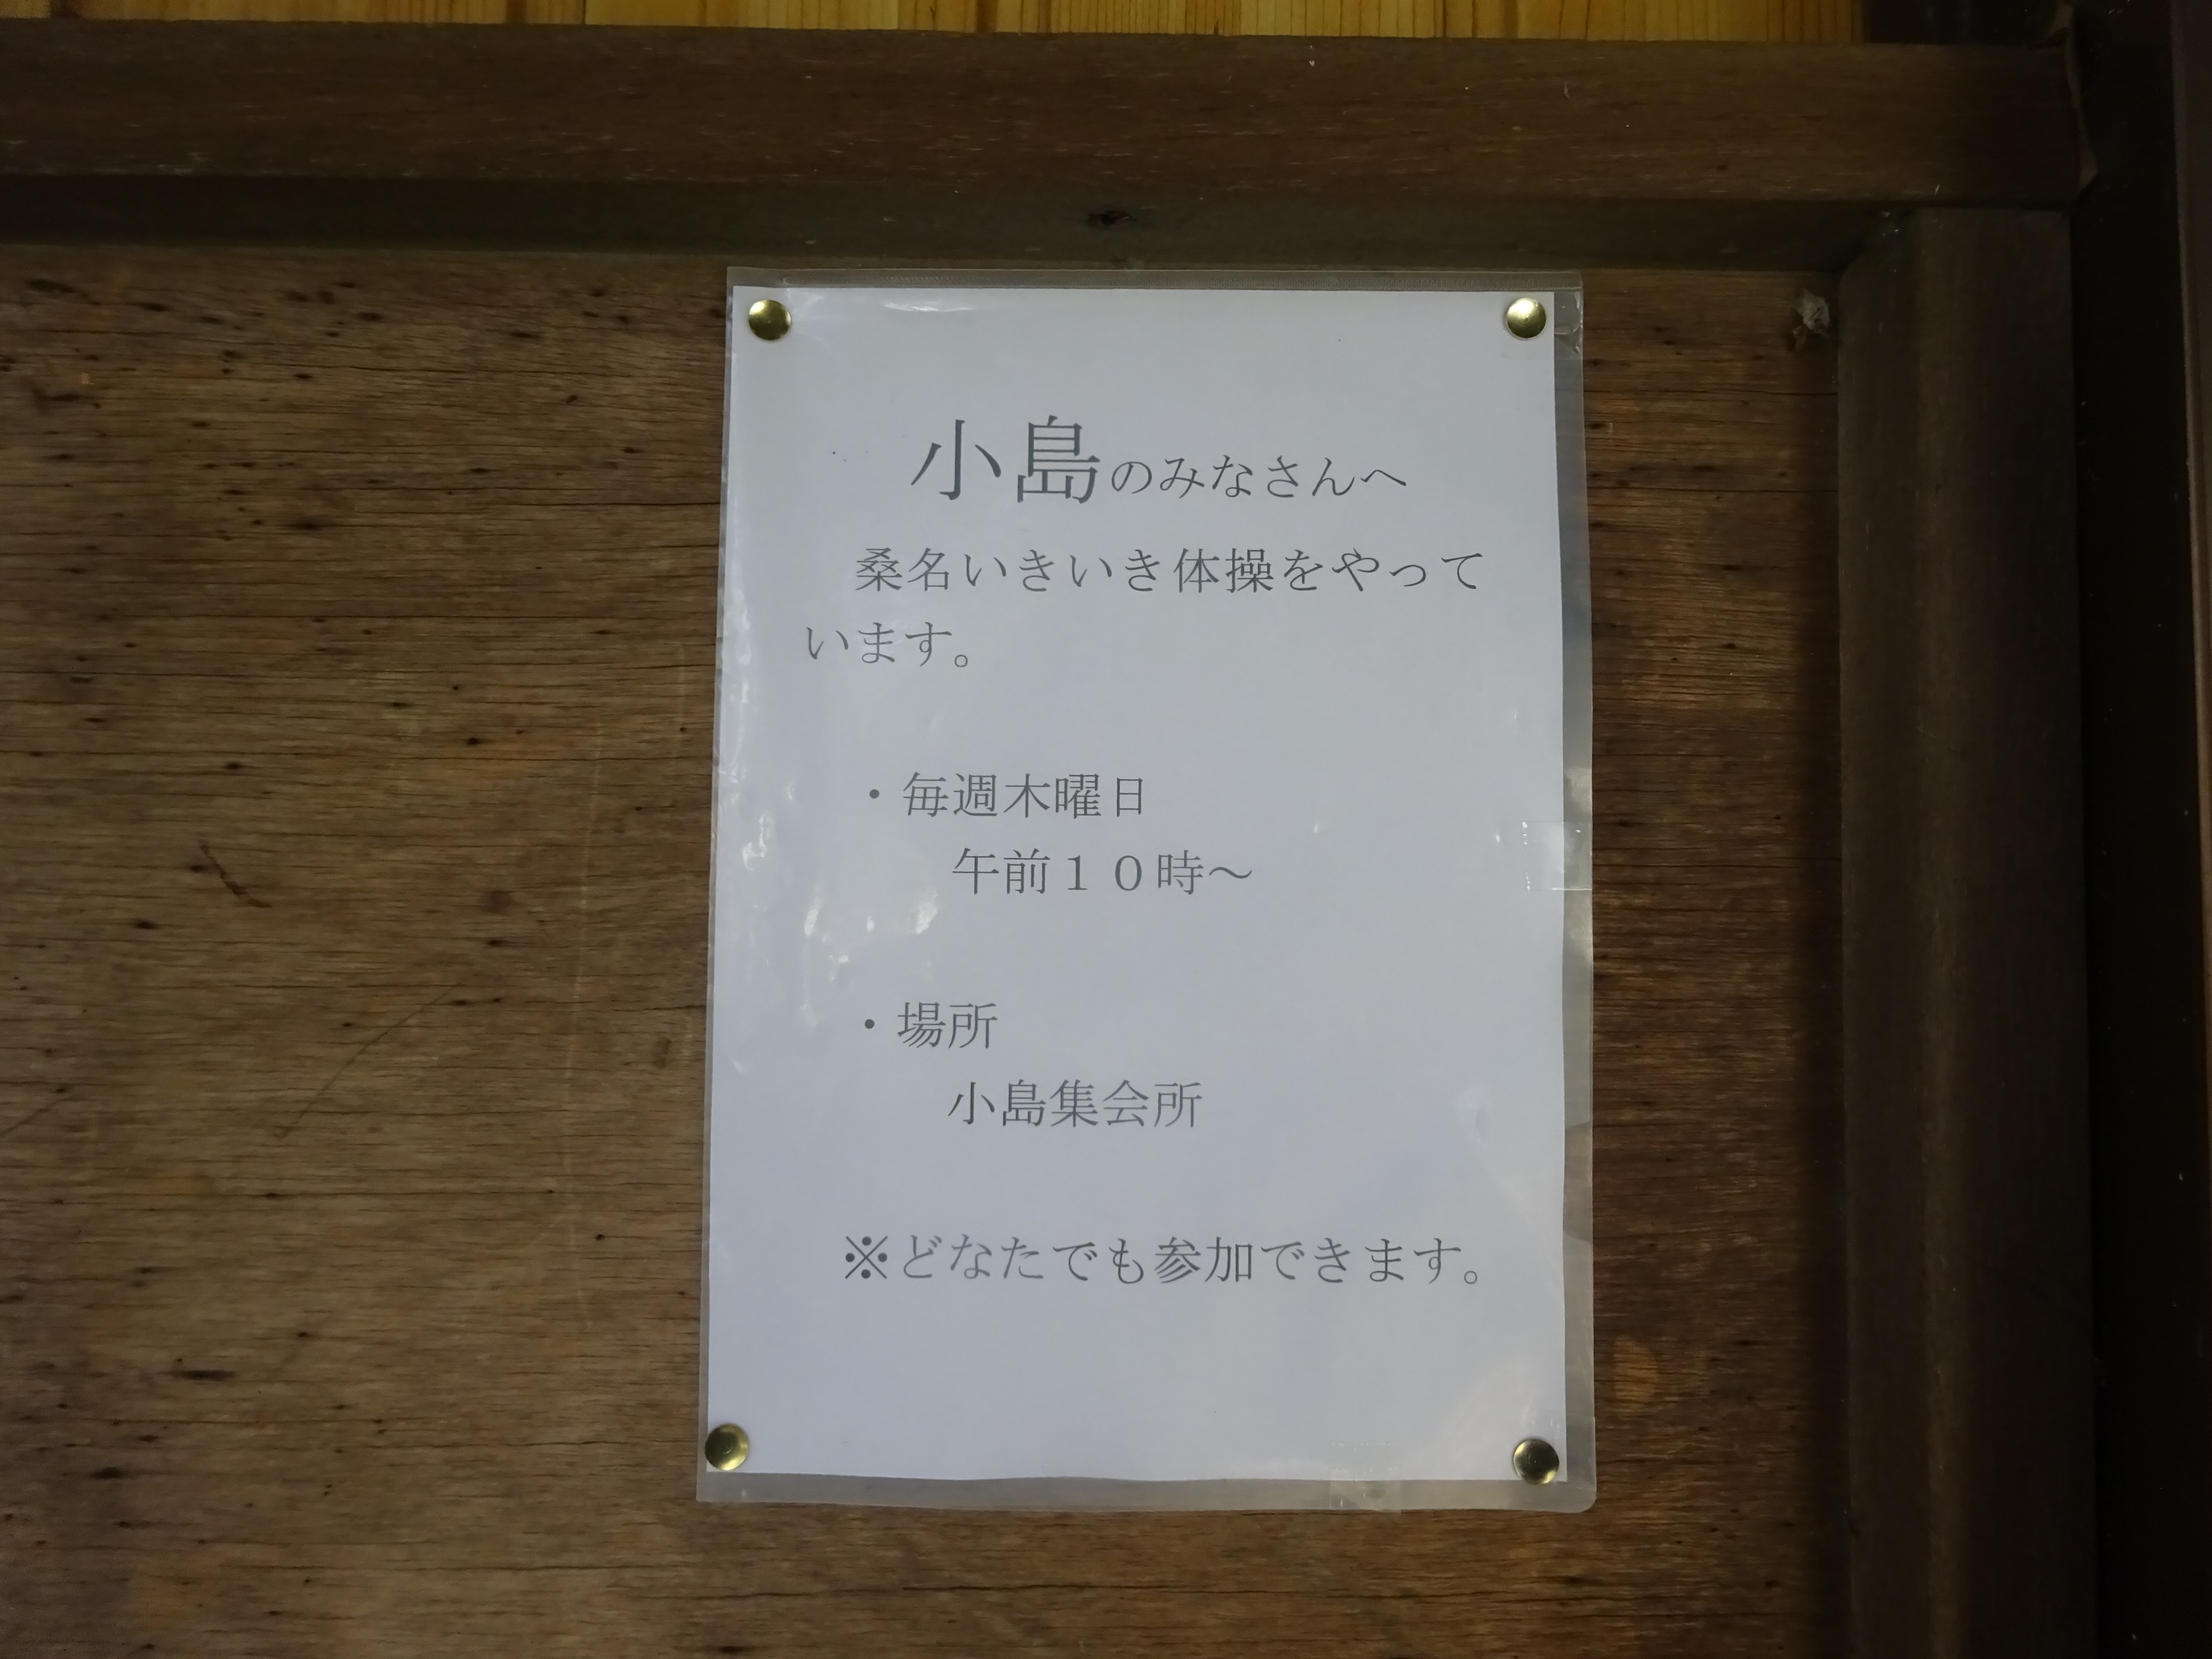 小島のみなさんへ
桑名いきいき体操をやって
います。
・毎週木曜日
午前１０時～
・場所
小島集会所
※どなたでも参加できます。